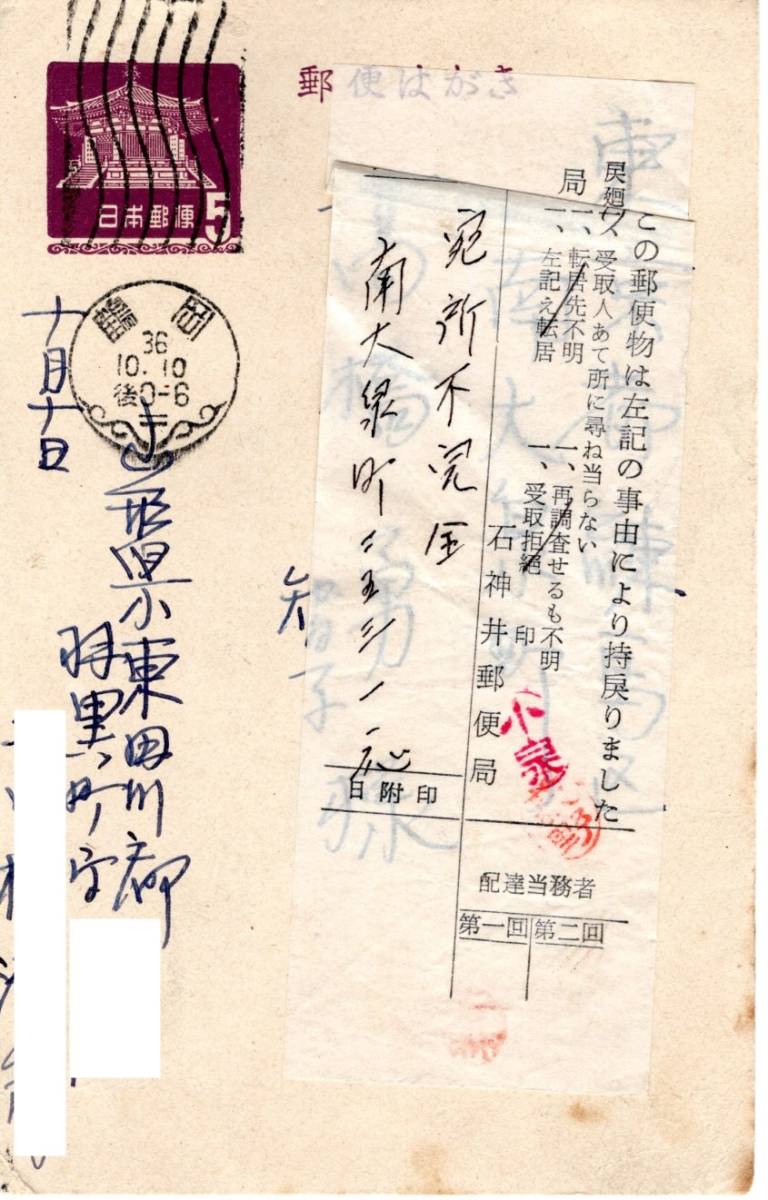 郵便はがき
日本郵便
5
鶴岡
36
10.10
後0-6
この郵便物は左記の事由により持戻りました
受取人あて所に尋ね当らない
一、転居先不明
一、左記え転居
一、再調査せるも不明
一、受取拒絶
戻廻
局
印
石神井郵便局
宛所不完全
南大泉町
日附印
配達当務者
第一回
第二回
東京都練馬区
南大泉町
高橋勇様
智子
十月十日
山形県東田川郡
羽黒町字